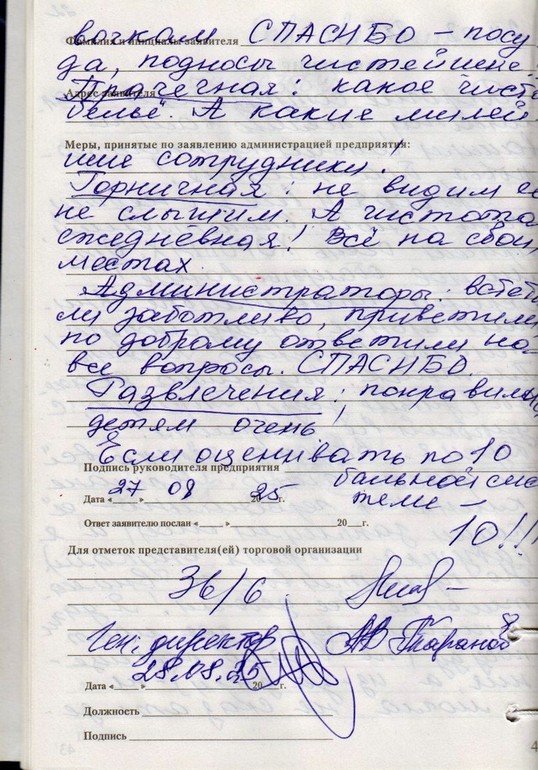 вочкам СПАСИБО – посу
Фамилия и инициалы заявителя
да, подносы чистейшие.
Адрес заявителя
Прачечная: какое чист
бельё. А какие милей
Меры, принятые по заявлению администрацией предприятия:
шие сотрудники!
Горничная: не видим её
не слышим. А чистота
ежедневная! Всё на свои
местах.
Администраторы: встет
ли заботливо, приветли
по доброму ответили на
все вопросы. СПАСИБО.
Развлечения: понравило
детям очень!
Если оценивать по 10
Подпись руководителя предприятия
бальной сис
Дата « 27 » 08 20 25 г.
теме –
Ответ заявителю послан « » 20 г.
10!!!
Для отметок представителя(ей) торговой организации
36/6
Ген. директор АВ Таранов
28.08.25
Дата « » 20 г.
Должность
Подпись
4